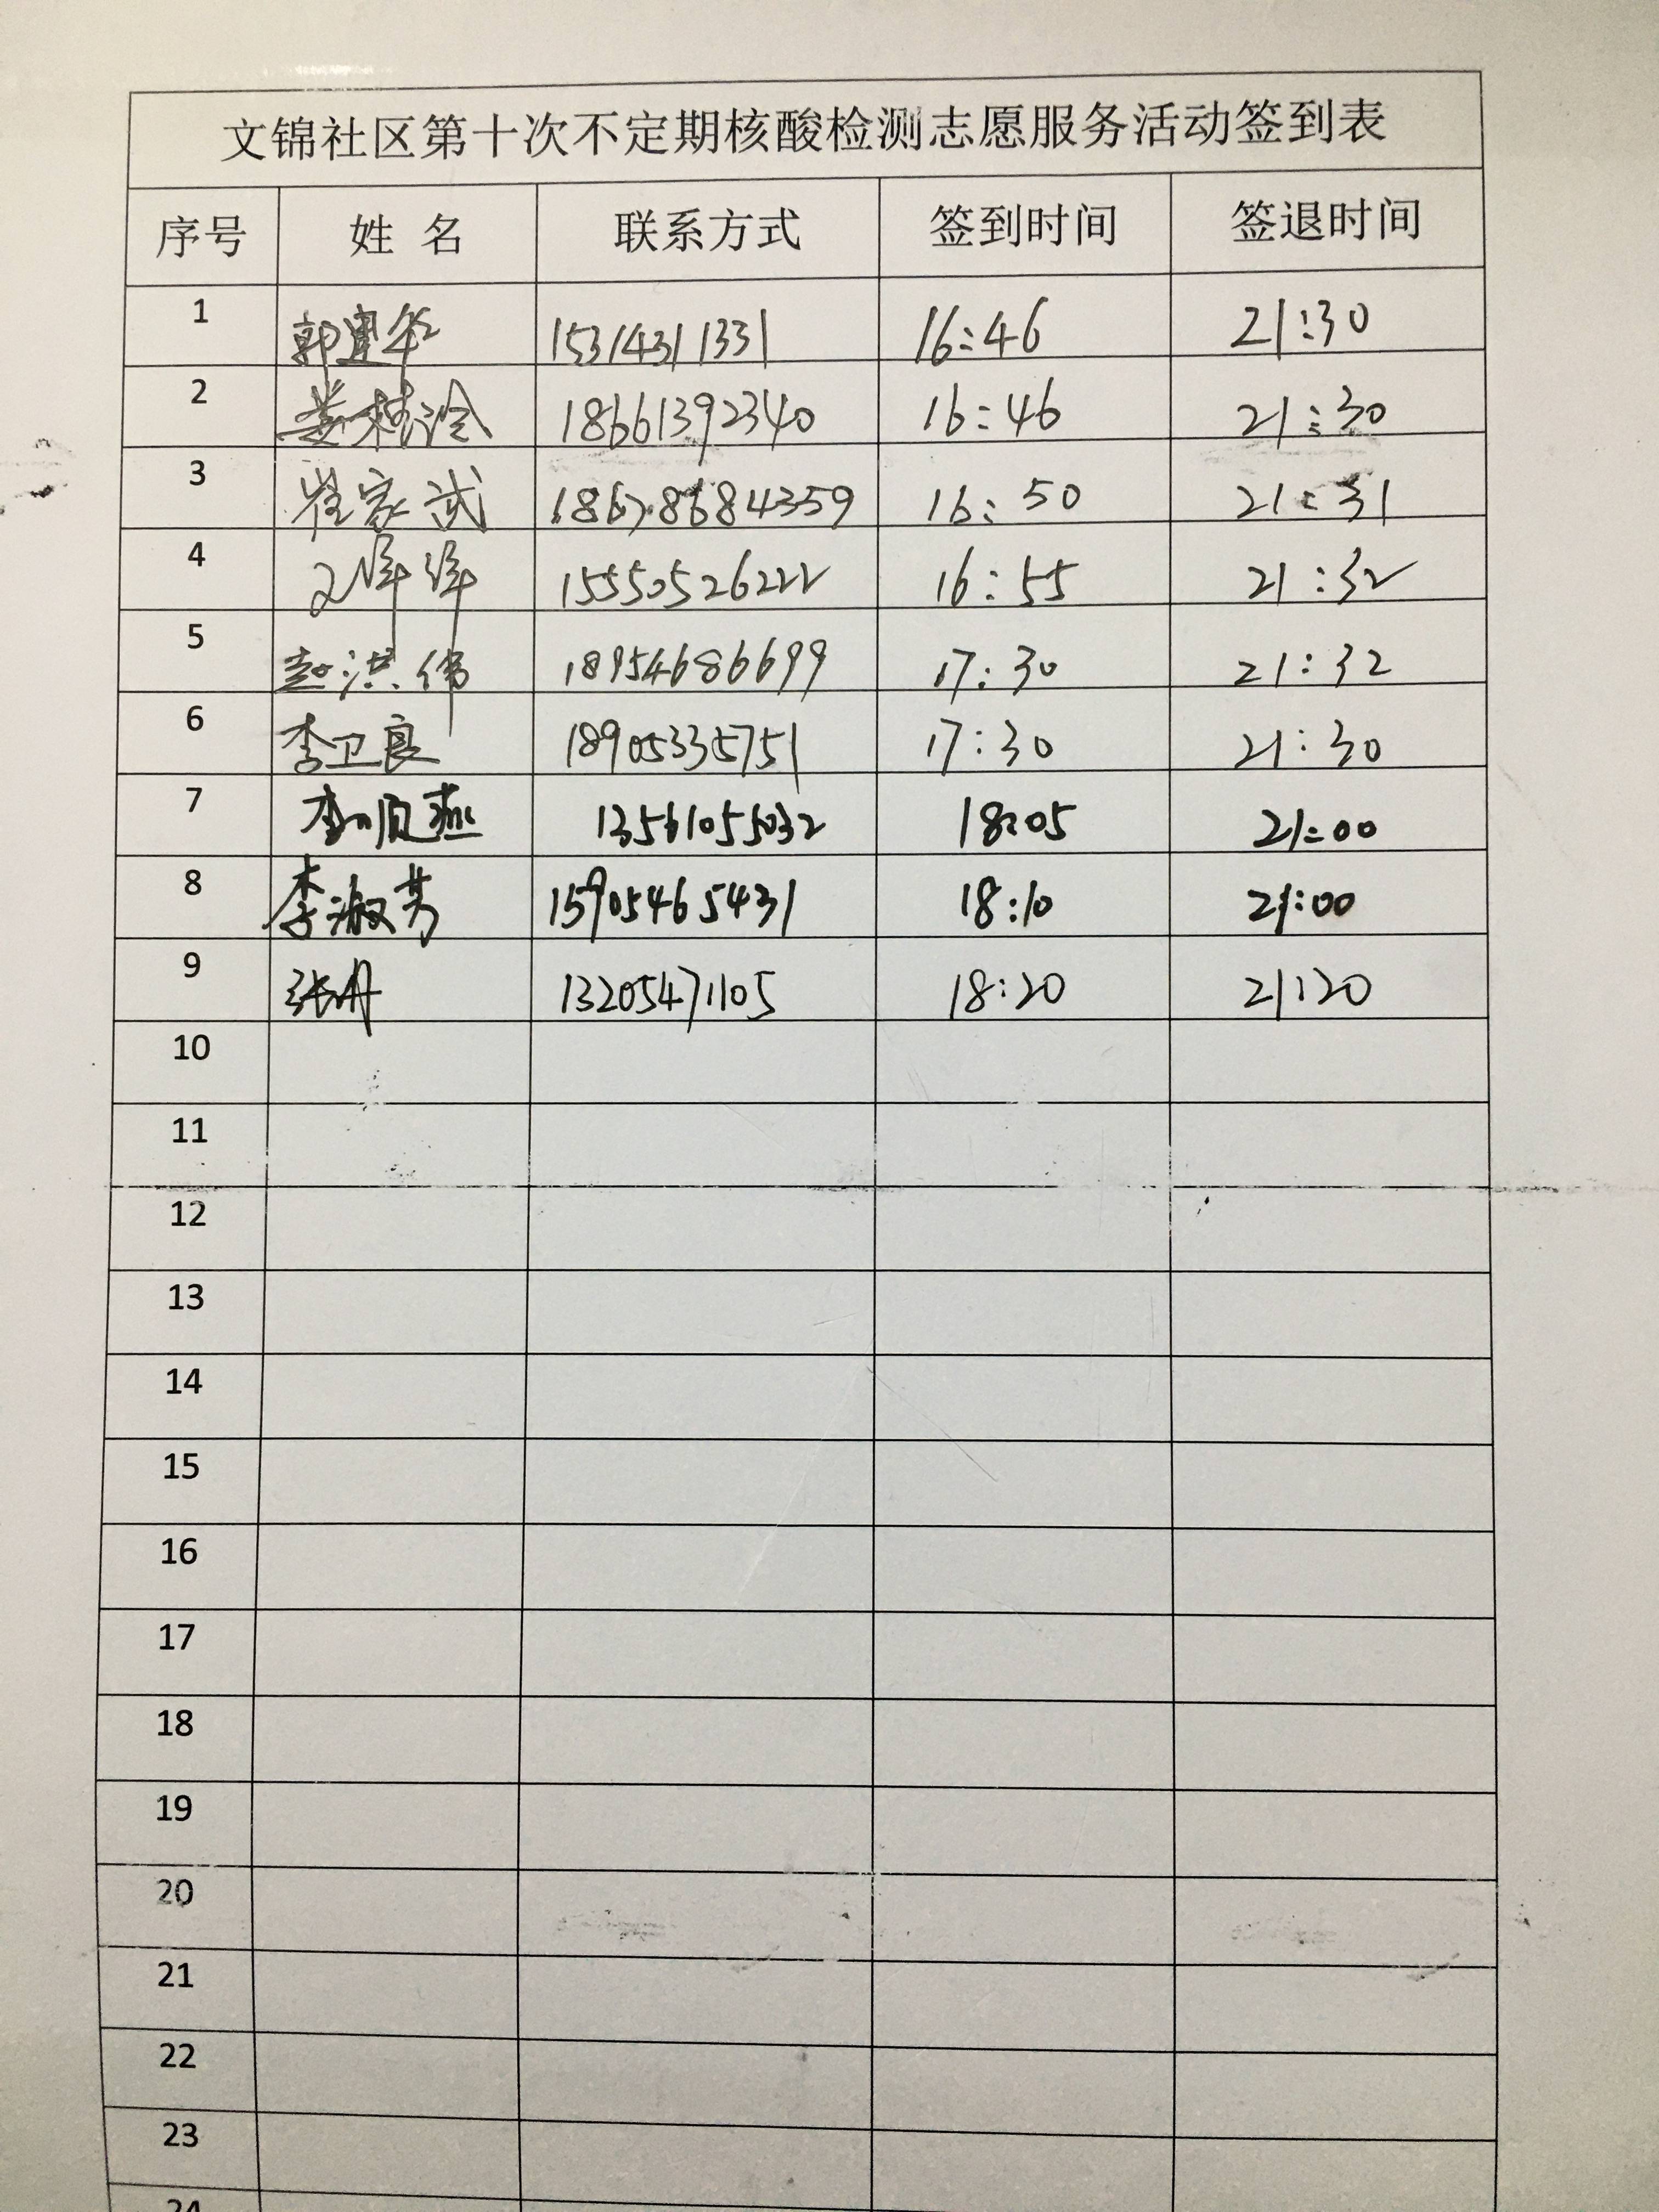 文锦社区第十次不定期核酸检测志愿服务活动签到表
序号 姓名 联系方式 签到时间 签退时间
1 郭建华 15314311331 16:46 21:30
2 娄桂玲 18661392340 16:46 21:30
3 崔家武 18678684359 16:50 21:31
4 15550526222 16:55 21:32
5 赵洪伟 18954686699 17:30 21:32
6 李卫良 18905335751 17:30 21:30
7 李顺燕 13561055032 18:05 21:00
8 李淑芳 15905465431 18:10 21:00
9 张丹 13205471105 18:20 21:20
10
11
12
13
14
15
16
17
18
19
20
21
22
23
24